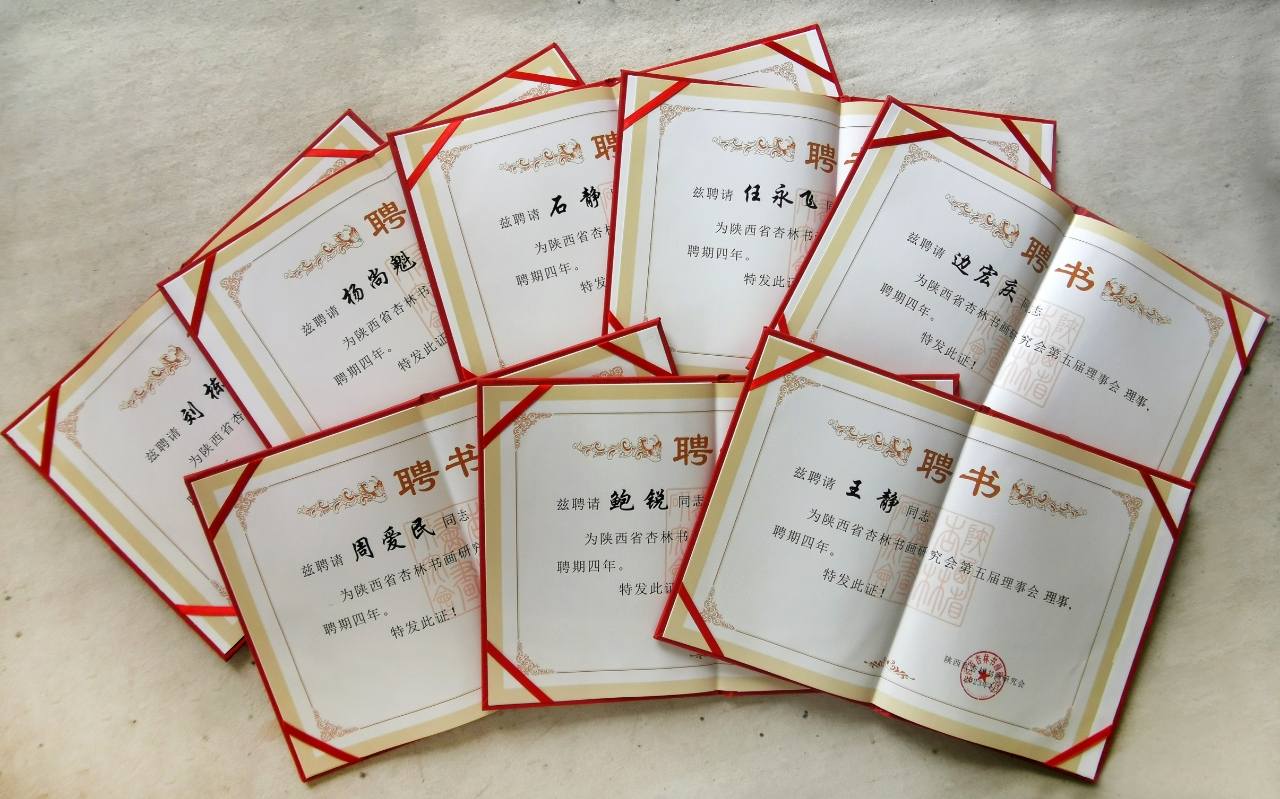 兹聘请 刘 栋
为陕西省杏
聘
兹聘请 杨尚魁
为陕西省杏林书
聘期四年。
特发此证
聘
兹聘请 石 静
为陕西省杏林
聘期四年。
特发
聘
兹聘请 任永飞 同
为陕西省杏林书
聘期四年。
特发此
聘书
兹聘请 边宏庆 同志
为陕西省杏林书画研究会第五届理事会 理事.
聘期四年。
特发此证!
聘书
兹聘请 周爱民 同志
为陕西省杏林书画研究
聘期四年。
特发此证!
聘
兹聘请 鲍 锐 同志
为陕西省杏林书
聘期四年。
特发此证
聘书
兹聘请 王 静 同志
为陕西省杏林书画研究会第五届理事会 理事.
聘期四年。
特发此证!